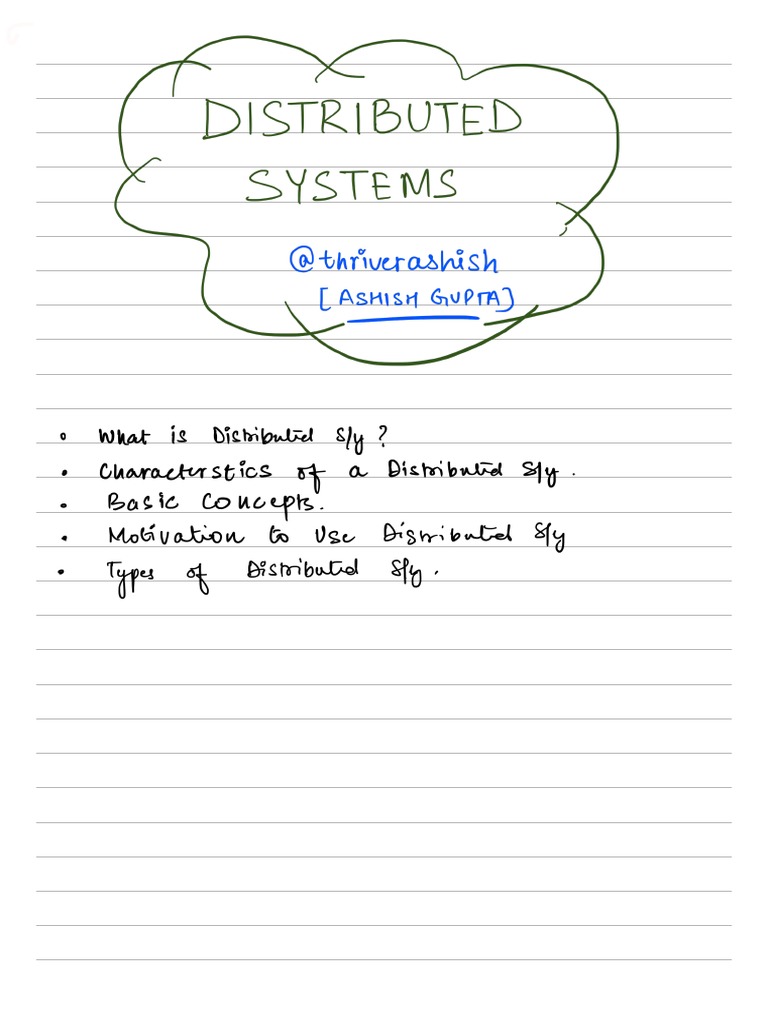 DISTRIBUTED
SYSTEMS
@thriverashish
[ASHISH GUPTA]
• What is Distributed S/y?
• Characterstics of a Distributed S/y.
• Basic Concepts.
• Motivation to Use Distributed S/y
• Types of Distributed S/y.